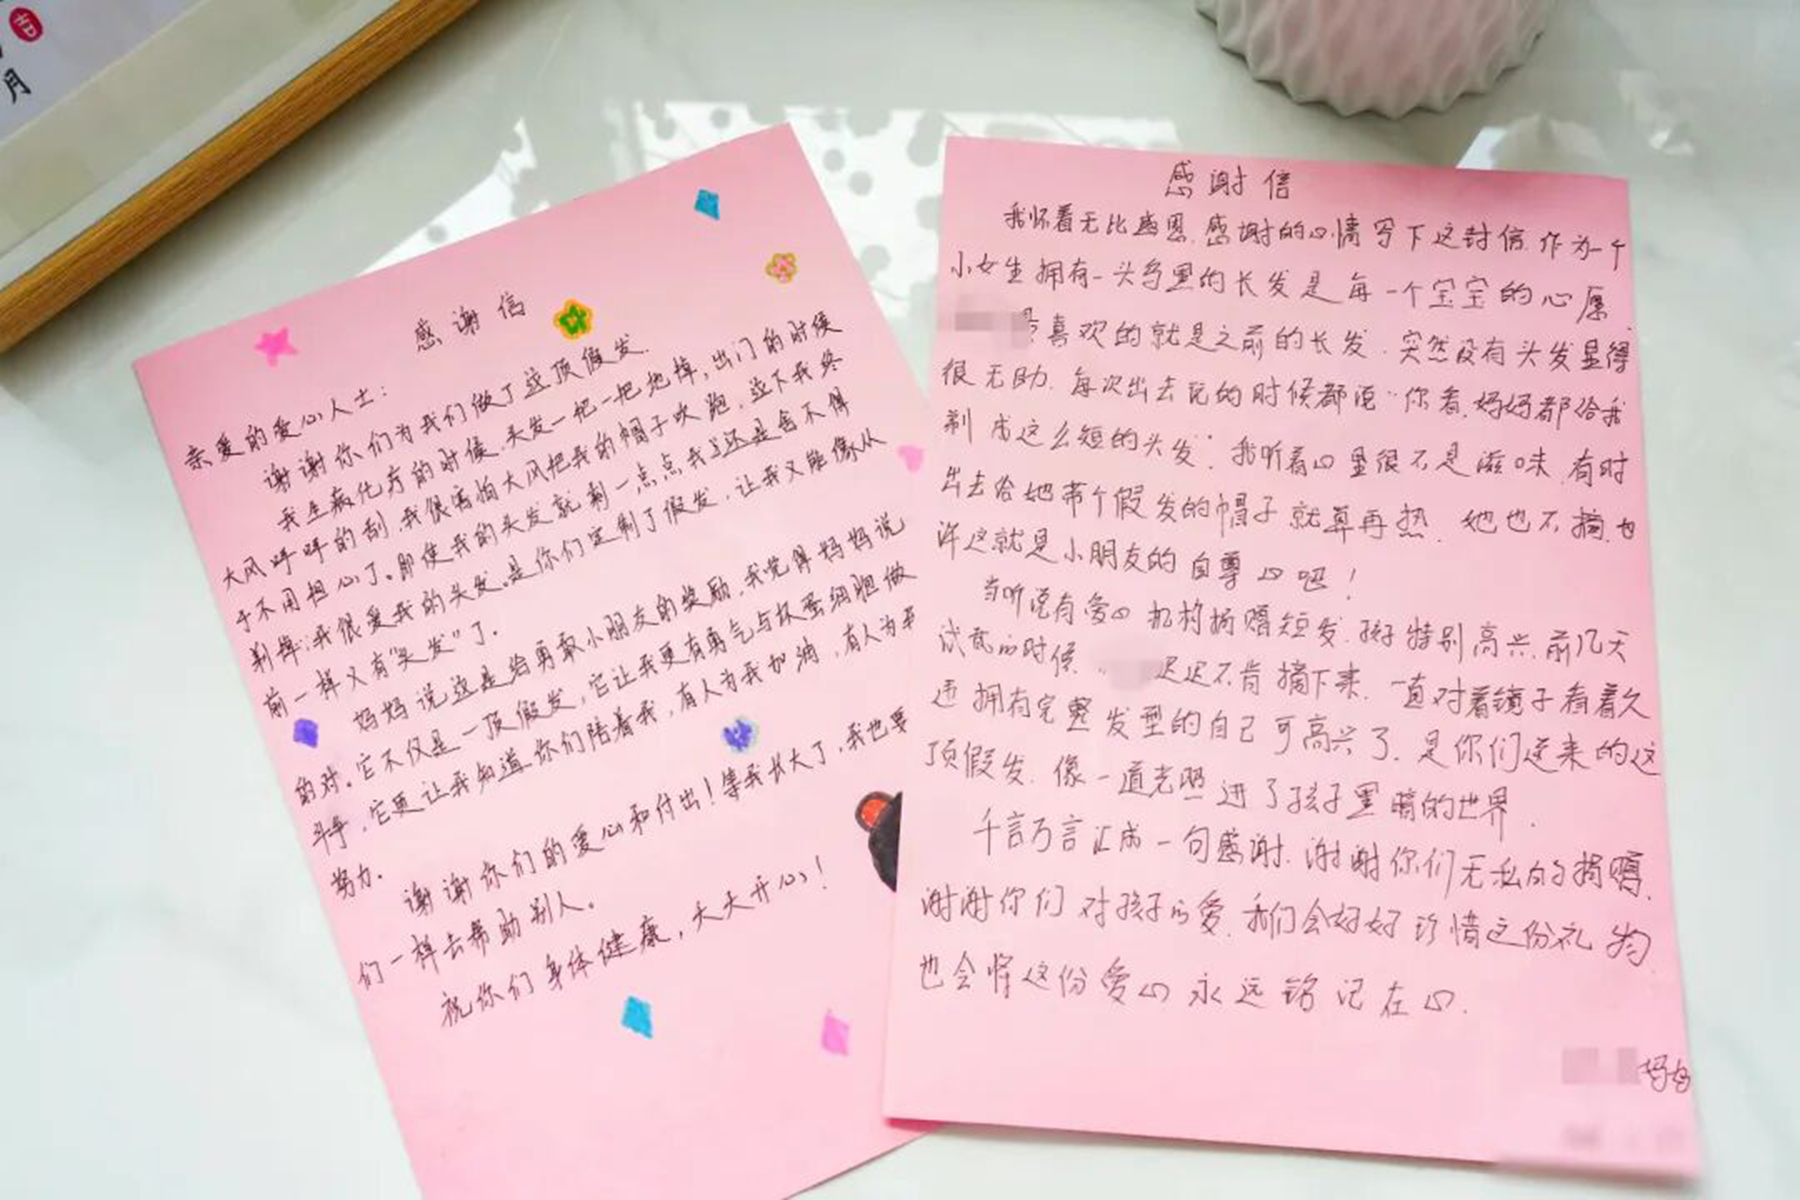 吉
月
感谢信
亲爱的爱心人士：
谢谢你们为我们做了这顶假发.
我生病化疗的时候,头发一把一把地掉,出门的时候
大风呼呼的刮,我很害怕大风把我的帽子吹跑,这下我终
于不用担心了。即使我的头发就剩一点点我还是舍不得
剃掉,我很爱我的头发。是你们定制了假发,让我又能像从
前一样又有“头发”了.
妈妈说这是给勇敢小朋友的奖励,我觉得妈妈说
的对。它不仅是一顶假发,它让我更有勇气与坏蛋细胞做
斗争,它更让我知道你们陪着我,有人为我加油,有人为我
努力.
谢谢你们的爱心和付出！等我长大了,我也要
们一样去帮助别人。
祝你们身体健康,天天开心！
感谢信
我怀着无比感恩.感谢的心情写下这封信.作为一个
小女生拥有一头乌黑的长发是每一个宝宝的心愿.
喜欢的就是之前的长发.突然没有头发显得
很无助.每次出去玩的时候都说“你看.妈妈都给我
剃成这么短的头发”.我听着心里很不是滋味.有时
出去给她带个假发的帽子就算再热.她也不摘.也
许这就是小朋友的自尊心吧！
当听说有爱心机构捐赠短发.孩子特别高兴.前几天
试戴的时候.迟迟不肯摘下来.一直对着镜子看着久
违拥有完整发型的自己可高兴了.是你们送来的这
顶假发.像一道光照进了孩子黑暗的世界.
千言万言汇成一句感谢.谢谢你们无私的捐赠.
谢谢你们对孩子的爱.我们会好好珍惜这份礼物.
也会将这份爱心永远铭记在心.
妈妈